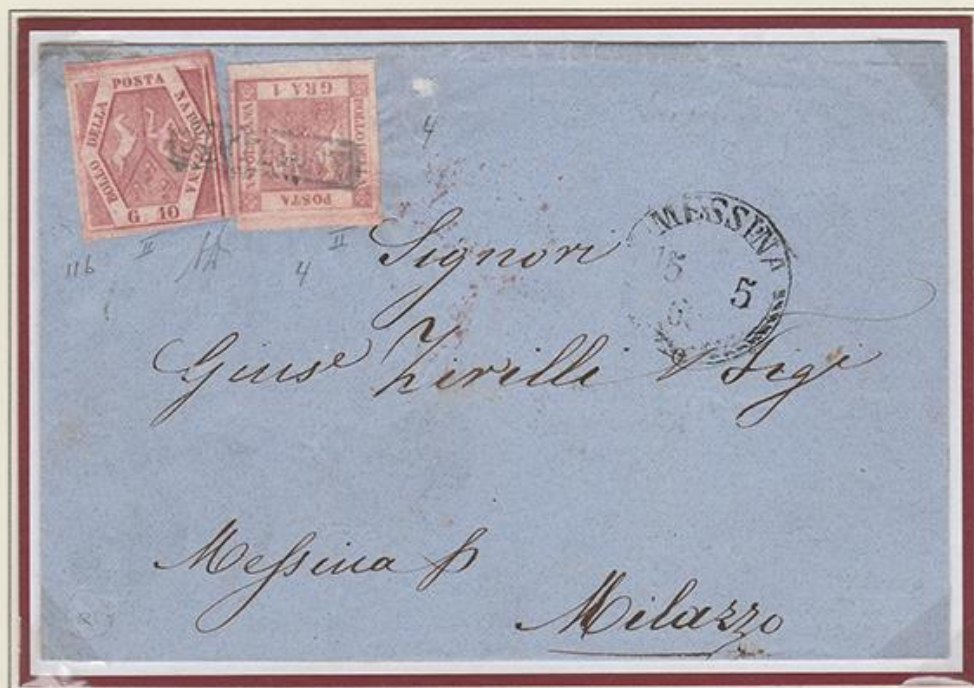 BOLLO DELLA POSTA NAPOLETANA
G 10
GRA 1
BOLLO DELLA
POSTA
NAPOLETANA
ANNULLATO
4
II
II
11b
4
MESSINA
15
5
Signori
Gius.e Zirilli & Figi
Messina p
Milazzo